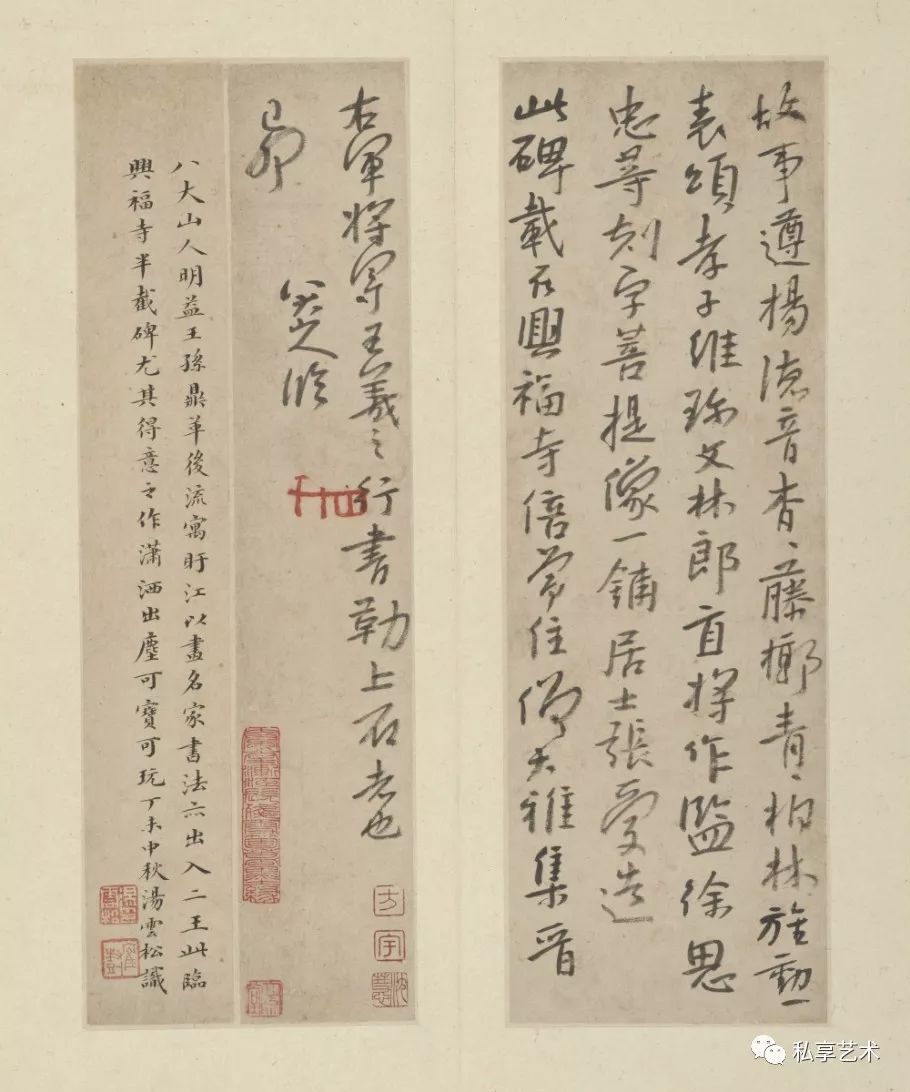 故事遵揚德音杳〻藤槨青〻柏林旌勳
表頌孝子維珎文林郎直將作監徐思
忠等刻字菩提像一鋪居士張愛造
此碑載在興福寺陪常住僧大雅集晉
右軍將軍王羲之行書勒上石者也
八大山人臨
八大山人明益王孫鼎革後流寓盱江以畫名家書法亦出入二王此臨
興福寺半截碑尤其得意之作瀟洒出塵可寶可玩丁未中秋湯雲松識
方
宇
私享艺术